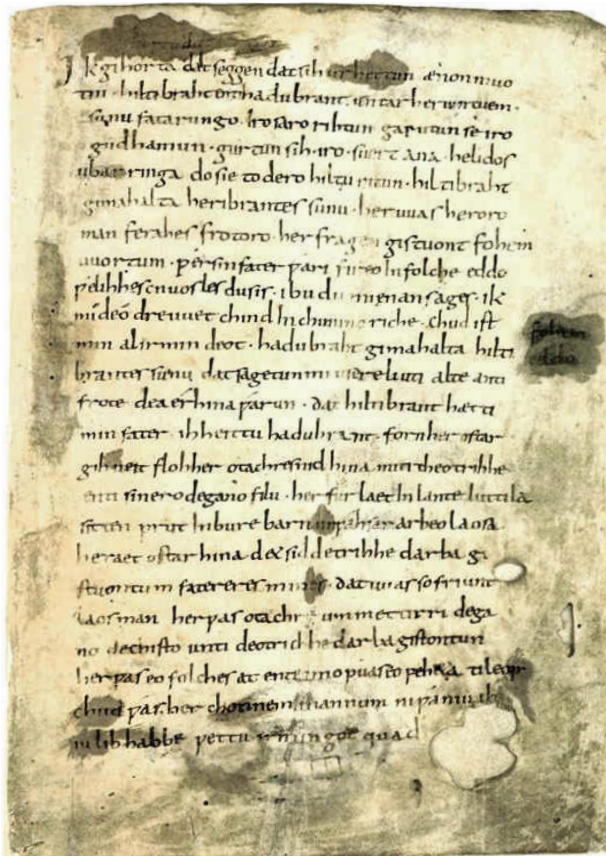 Ik gihorta dat seggen dat sih urhettun ænon muo
tin · hiltibraht enti hadubrant · untar heriun tuem ·
sunu fatarungo · iro saro rihtun garutun se iro
gudhamun · gurtun sih · iro · suert ana · helidos
ubar ringa do sie to dero hiltu ritun · hiltibraht
gimahalta heribrantes sunu · her uuas heroro
man ferahes frotoro · her fragen gistuont fohem
uuortum · ƿer sin fater ƿari fireo In folche eddo
ƿelihhes cnuosles du sis · ibu du mi enan sages · ik
mi deo dre uuet chind In chunincriche · chud ist
min al irmin deot · hadubraht gimahalta hilti
brantes sunu dat sagetun mi usere liuti alte anti
frote dea érhina ƿarun · dat hiltibrant hætti
min fater · ih heittu hadubrant · forn her ostar
gihueit floh her otachres nid hina miti theotrihhe
enti sinero degano filu · her furlaet In lante luttila
sitten prut In bure barn unƿahsan arbeo laosa
heraet ostar hina det sid detrihhe darba gi
stuontum fatereres mines · dat uuas so friunt
laos man her ƿas otachre ummettirri dega
no dechisto unti deotrichhe darba gistontun
her ƿas eo folches at ente imo ƿuas eo feheta ti leop
chud ƿas her chonnem mannum ni ƿaniu ih
iu lib habbe ƿettu irmingot quad